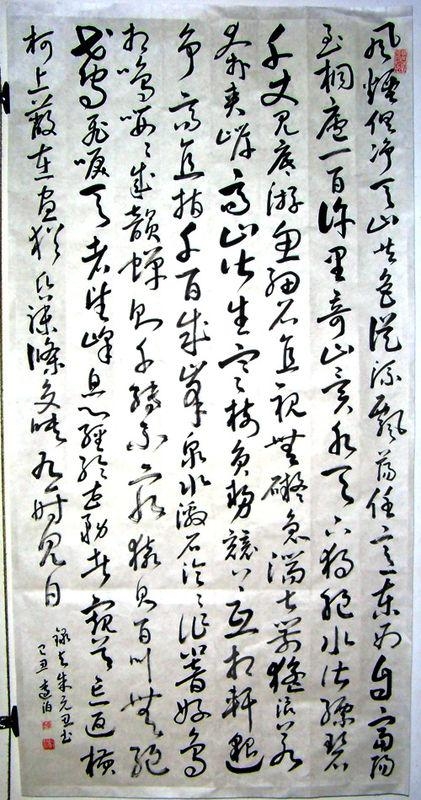 風煙俱净天山共色從流飄蕩任意東西自富陽
至桐廬一百許里奇山異水天下獨絕水皆縹碧
千丈見底游魚細石直視無礙急湍甚箭猛浪若
奔夾岸高山皆生寒樹負勢競上互相軒邈
爭高直指千百成峰泉水激石泠泠作響好鳥
相鳴嚶嚶成韻蟬則千轉不窮猿則百叫無絕
鳶飛戾天者望峰息心經綸世務者窺谷忘返橫
柯上蔽在晝猶昏疏條交映有時見日
錄与朱元思书
己丑